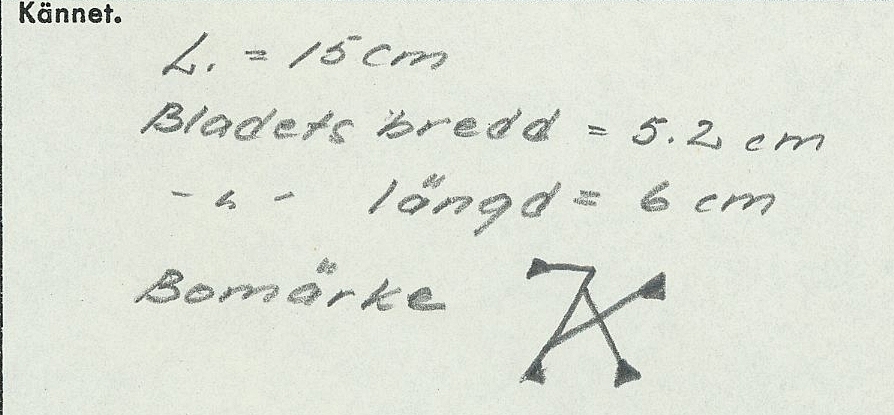 Kännet.
L. = 15 cm
Bladets bredd = 5.2 cm
- " - längd = 6 cm
Bomärke